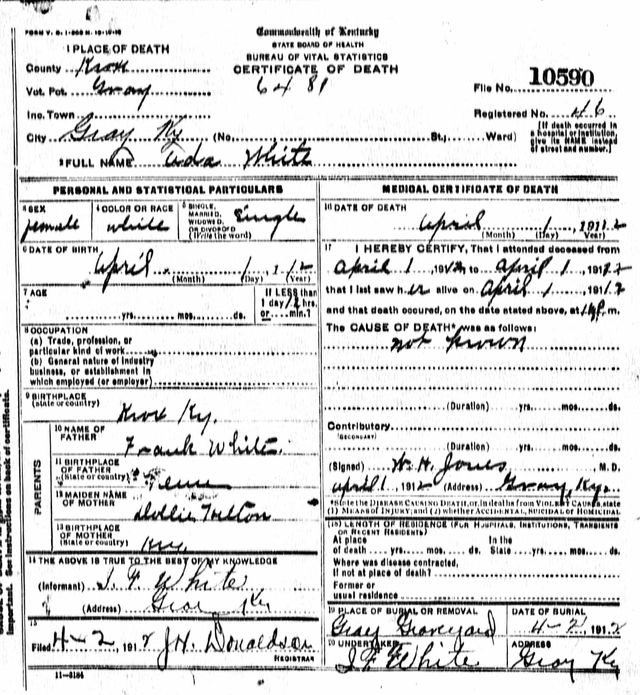 FORM V. S.
Commonwealth of Kentucky
STATE BOARD OF HEALTH
BUREAU OF VITAL STATISTICS
CERTIFICATE OF DEATH
1 PLACE OF DEATH
County Knox
Vot. Pct. Gray
Inc. Town
City Gray Ky (No. St., Ward)
6481
File No. 10590
Registered No. 46
[If death occurred in
a hospital or institution,
give its NAME instead
of street and number.]
2 FULL NAME Ada White
PERSONAL AND STATISTICAL PARTICULARS
3 SEX female
4 COLOR OR RACE white
5 SINGLE, MARRIED, WIDOWED, OR DIVORCED (Write the word) Single
6 DATE OF BIRTH
April 1 1912
(Month) (Day) (Year)
7 AGE
yrs. mos. ds.
If LESS than
1 day 12 hrs.
or min.?
8 OCCUPATION
(a) Trade, profession, or
particular kind of work
(b) General nature of industry
business, or establishment in
which employed (or employer)
9 BIRTHPLACE
(State or country)
Knox Ky.
PARENTS
10 NAME OF
FATHER
Frank White
11 BIRTHPLACE
OF FATHER
(State or country)
Tenn
12 MAIDEN NAME
OF MOTHER
Dollie
13 BIRTHPLACE
OF MOTHER
(State or country)
Ky.
14 THE ABOVE IS TRUE TO THE BEST OF MY KNOWLEDGE
(Informant) J. F. White
(Address) Gray Ky
15
Filed 4-2 1912 J.H. Donaldson
REGISTRAR
11-3184
MEDICAL CERTIFICATE OF DEATH
16 DATE OF DEATH
April 1 1912
(Month) (Day) (Year)
17 I HEREBY CERTIFY, That I attended deceased from
April 1 1912 to April 1 1912
that I last saw her alive on April 1 1912
and that death occured, on the date stated above, at m.
The CAUSE OF DEATH* was as follows:
not known
(Duration) yrs. mos. ds.
Contributory
(SECONDARY)
(Duration) yrs. mos. ds.
(Signed) W. H. Jones M. D.
April 1 1912 (Address) Gray, Ky.
*State the DISEASE CAUSING DEATH, or, in deaths from VIOLENT CAUSES, state
(1) MEANS OF INJURY; and (2) whether ACCIDENTAL, SUICIDAL or HOMICIDAL
18 LENGTH OF RESIDENCE (FOR HOSPITALS, INSTITUTIONS, TRANSIENTS
OR RECENT RESIDENTS)
At place In the
of death yrs. mos. ds. State yrs. mos. ds.
Where was disease contracted,
If not at place of death?
Former or
usual residence
19 PLACE OF BURIAL OR REMOVAL
Gray Graveyard
DATE OF BURIAL
4-2 1912
20 UNDERTAKER
J F White
ADDRESS
Gray Ky
Important. See instructions on back of certificate.